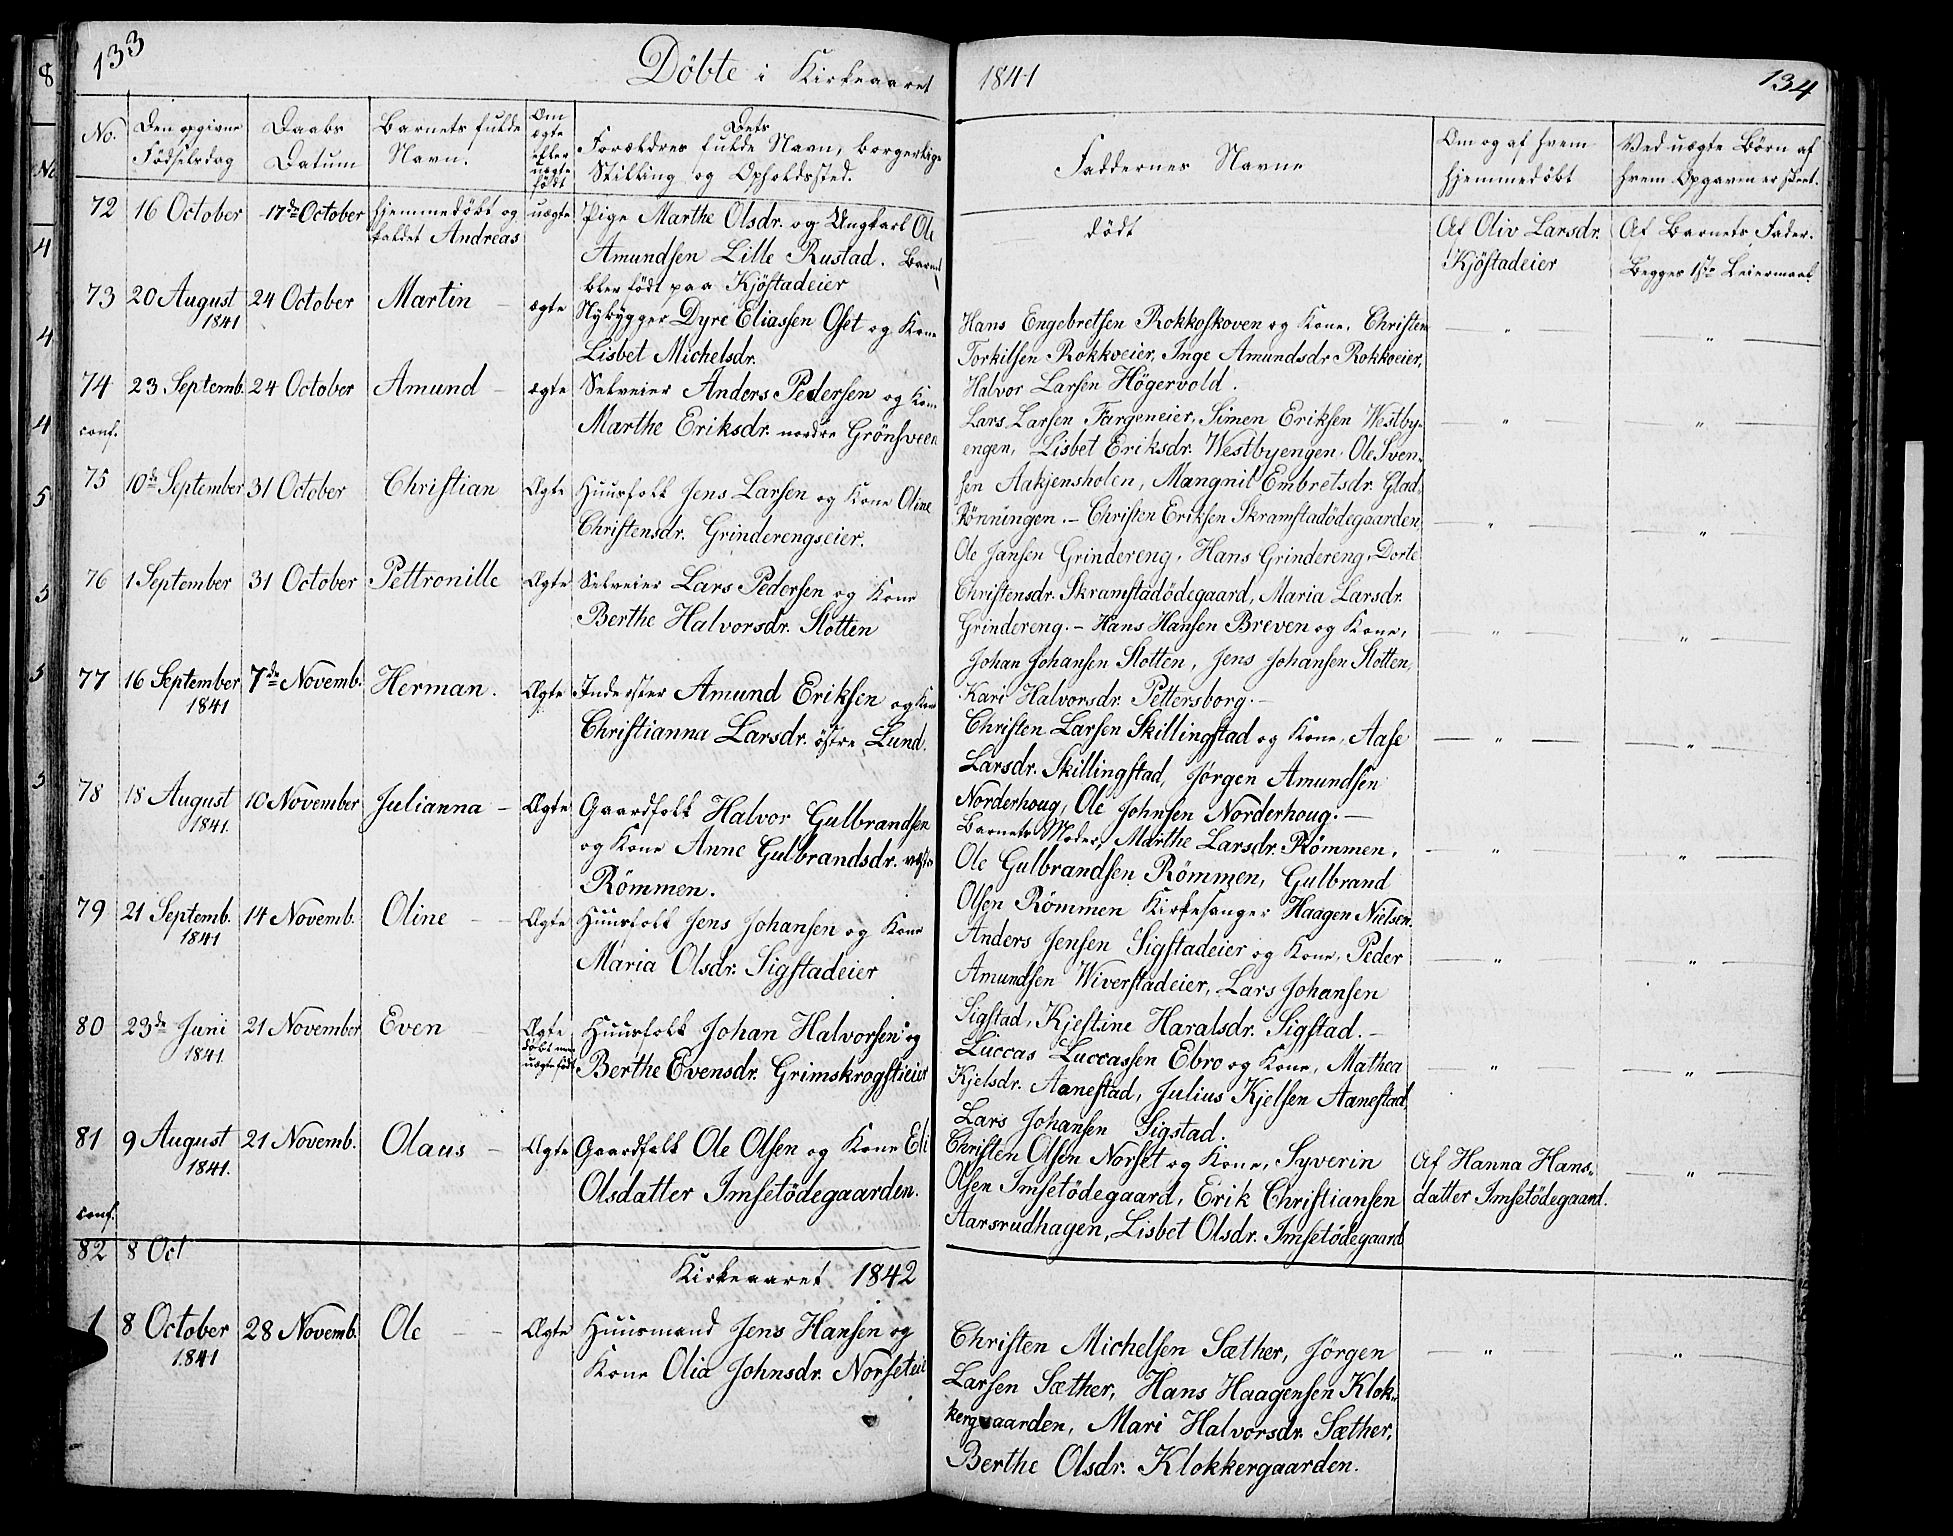 133
Döbte i Kirkeaaret
1841
134
No.
Den opgivne Födselsdag
Daabs Datum
Barnets fulde Navn.
Om ægte eller uægte födt
Dets Forældres fulde Navn, borgerlige Stilling og Opholdssted.
Faddernes Navne
Om og af hvem hjemmedöbt
Ved uægte Börn af hvem Opgaven er skeet.
72 16 October 17de October hjemmedöbt og uægte Pige Marthe Olsdr. og Ungkarl Ole
kaldet Andreas Amundsen Lille Rustad. Barnet
blev födt paa Kjöstadeier
dödt
Af Oliv Larsdr.
Kjöstadeier
Af Barnets Fader.
Begges 1ste Leiermaal.
73 20 August 24 October Martin – ægte Nybygger Dyre Eliassen Oset og Kone
1841 Lisbet Michelsdr.
Hans Engebretsen Rokkoskoven og Kone, Christen – " –
Torkilsen Rokkoeier, Inge Amundsdr Rokkoeier, – " –
Halvor Larsen Högervold.
74 23 Septemb. 24 October Amund – ægte Selveier Anders Pedersen og Kone
conf. Marthe Eriksdr. nordre Grönsveen
Lars Larsen Fargeneier, Simen Eriksen Westby- – " – – " –
engen, Lisbet Eriksdr. Westbyengen. Ole Sven-
sen Aakjensholen, Mangnil Embretsdr. Glad-
75 10de September 31 October Christian Ægte Huusfolk Jens Larsen og Kone Oline
Christensdr. Grinderengseier.
Rönningen. – Christen Eriksen Skramstadödegaarden, – " – – " –
Ole Jansen Grindereng, Hans Grindereng, Dorte
Christensdr. Skramstadödegaard, Maria Larsdr.
76 1 September 31 October Pettronille Ægte Selveier Lars Pedersen og Kone
Berthe Halvorsdr. Slotten
Grindereng. – Hans Hansen Breven og Kone, – " – – " –
Johan Johansen Slotten, Jens Johansen Slotten,
Kari Halvorsdr. Pettersborg. –
77 16 September 7de Novemb. Herman. Ægte Inderster Amund Eriksen og Kone
1841 Christianna Larsdr. östre Lund.
Christen Larsen Skillingstad og Kone, Aase – " – – " –
Larsdr. Skillingstad, Jørgen Amundsen
Norderhoug, Ole Johnsen Norderhoug. –
78 18 August 10 November Julianna – Ægte Gaardfolk Halvor Gulbrandsen
1841. og Kone Anne Gulbrandsdr.
Römmen.
Barnets Moder, Marthe Larsdr. Römmen, – " – – " –
Ole Gulbrandsen Römmen, Gulbrand
Olsen Römmen Kirkesanger Haagen Nielsen.
79 21 Septemb. 14 Novemb. Oline – Ægte Huusfolk Jens Johansen og Kone
1841 Maria Olsdr. Sigstadeier
Anders Jensen Sigstadeier og Kone, Peder – " – – " –
Amundsen Wiverstadeier, Lars Johansen
Sigstad, Kjestine Haralsdr. Sigstad. –
80 23de Juni 21 November Even – Ægte Huusfolk Johan Halvorsen og
1841. döbt men uægte födt Berthe Evensdr. Grimskrogstieier
Luccas Luccassen Ebro og Kone, Mathea " – – " –
Kjelsdr. Aanestad, Julius Kjelsen Aanestad,
Lars Johansen Sigstad.
81 9 August 21 Novemb. Olaus – Ægte Gaardfolk Ole Olsen og Kone Eli
1841. Olsdatter Imsetödegaarden.
conf.
Christen Olsen Norset og Kone, Syverin Af Hanna Hans- – " –
Olsen Imsetödegaard, Erik Christiansen datter Imsetödegaard.
Aarsrudhagen, Lisbet Olsdr. Imsetödegaard
82 8 Oct
Kirkeaaret 1842
1 8 October 28 Novemb. Ole – – Ægte Huusmand Jens Hansen og
1841 Kone Olia Johnsdr. Norseteie
Christen Michelsen Sæther, Jørgen – " – – " –
Larsen Sæther, Hans Haagensen Klok-
kergaarden, Mari Halvorsdr. Sæther,
Berthe Olsdr. Klokkergaarden.
8
No
4
4
4
5
5
5
5